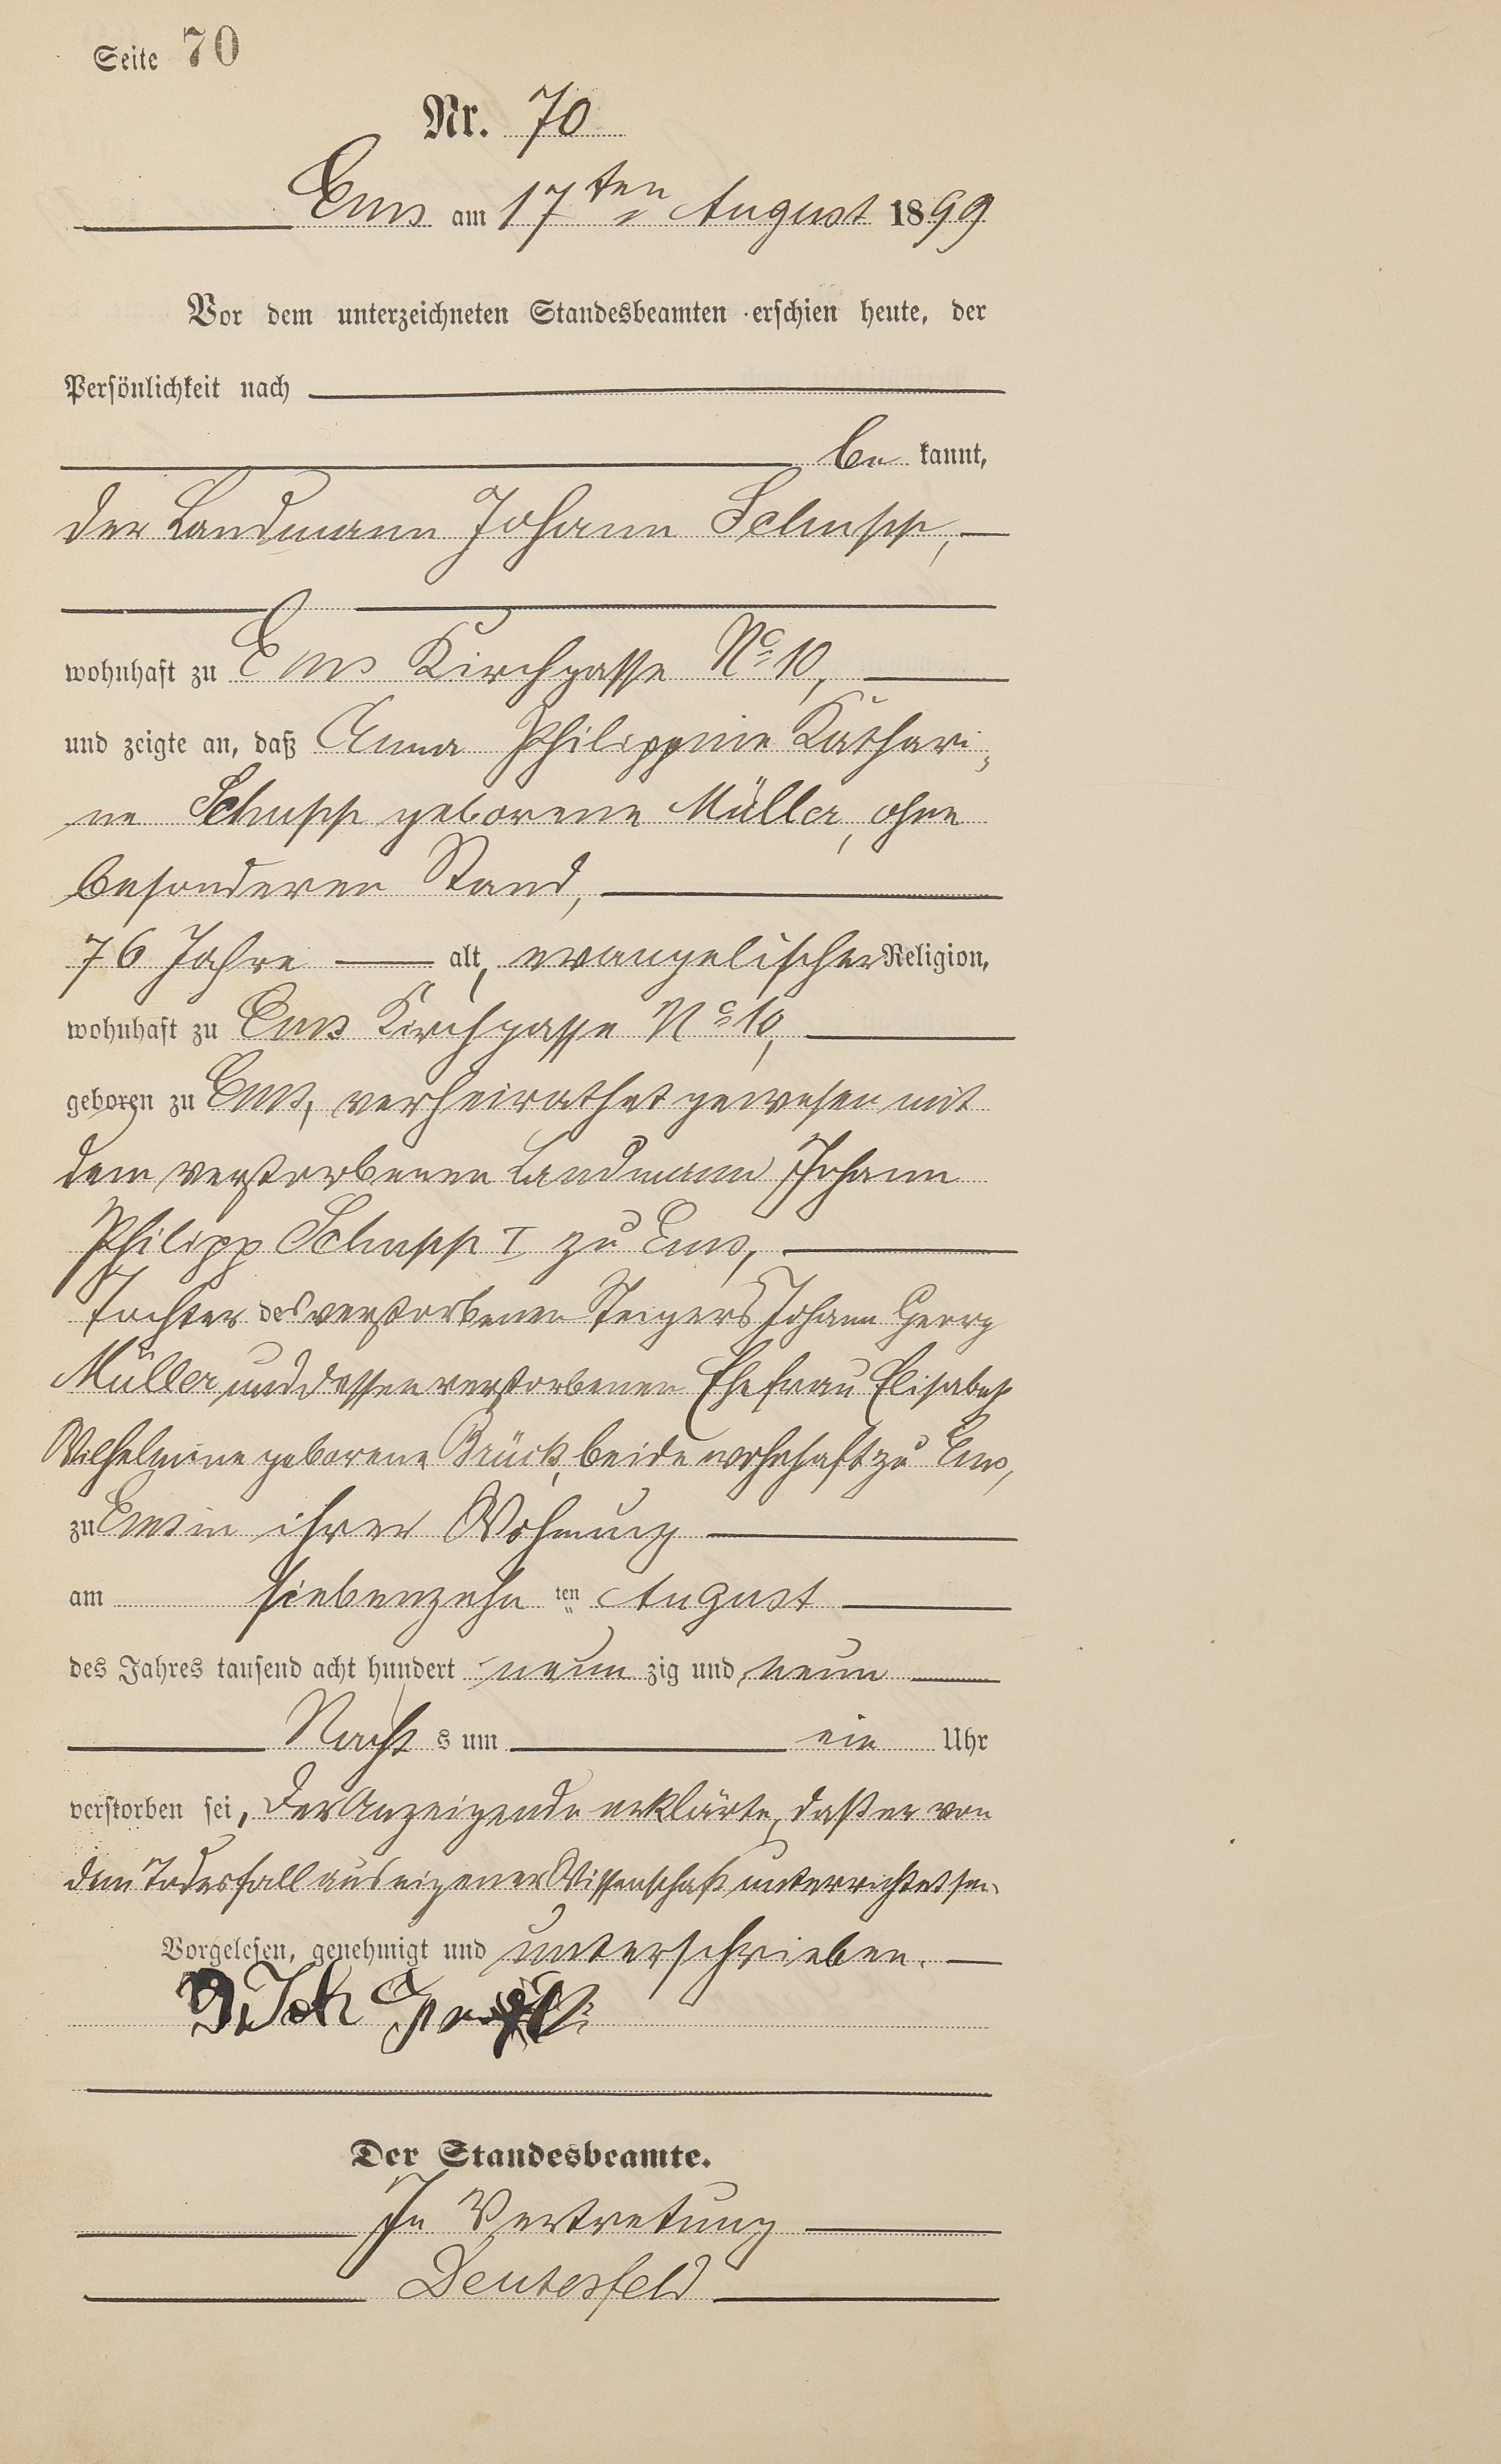 Seite 70
Nr. 70
Ems am 17ten August 1899
Vor dem unterzeichneten Standesbeamten erschien heute, der
Persönlichkeit nach
be kannt,
der Landmann Johann Schupp,
wohnhaft zu Ems Kirchgasse No 10,
und zeigte an, daß Anna Philippine Kathari-
ne Schupp geborene Müller, ohne
besonderen Stand,
76 Jahre alt, evangelischer Religion,
wohnhaft zu Ems Kirchgasse No 10,
geboren zu Ems, verheirathet gewesen mit
dem verstorbenen Landmann Johann
Philipp Schupp I zu Ems,
Tochter des verstorbenen Steigers Johann Georg
Müller und dessen verstorbenen Ehefrau Elisabeth
Wilhelmine geborene Brück, beide wohnhaft zu Ems,
zu Ems in ihrer Wohnung
am siebenzehn ten August
des Jahres tausend acht hundert neun zig und neun
Nacht s um ein Uhr
verstorben sei, Der Anzeigende erklärte, daß er von
dem Todesfall aus eigener Wissenschaft unterrichtet sei.
Vorgelesen, genehmigt und unterschrieben.
Joh
Der Standesbeamte.
In Vertretung